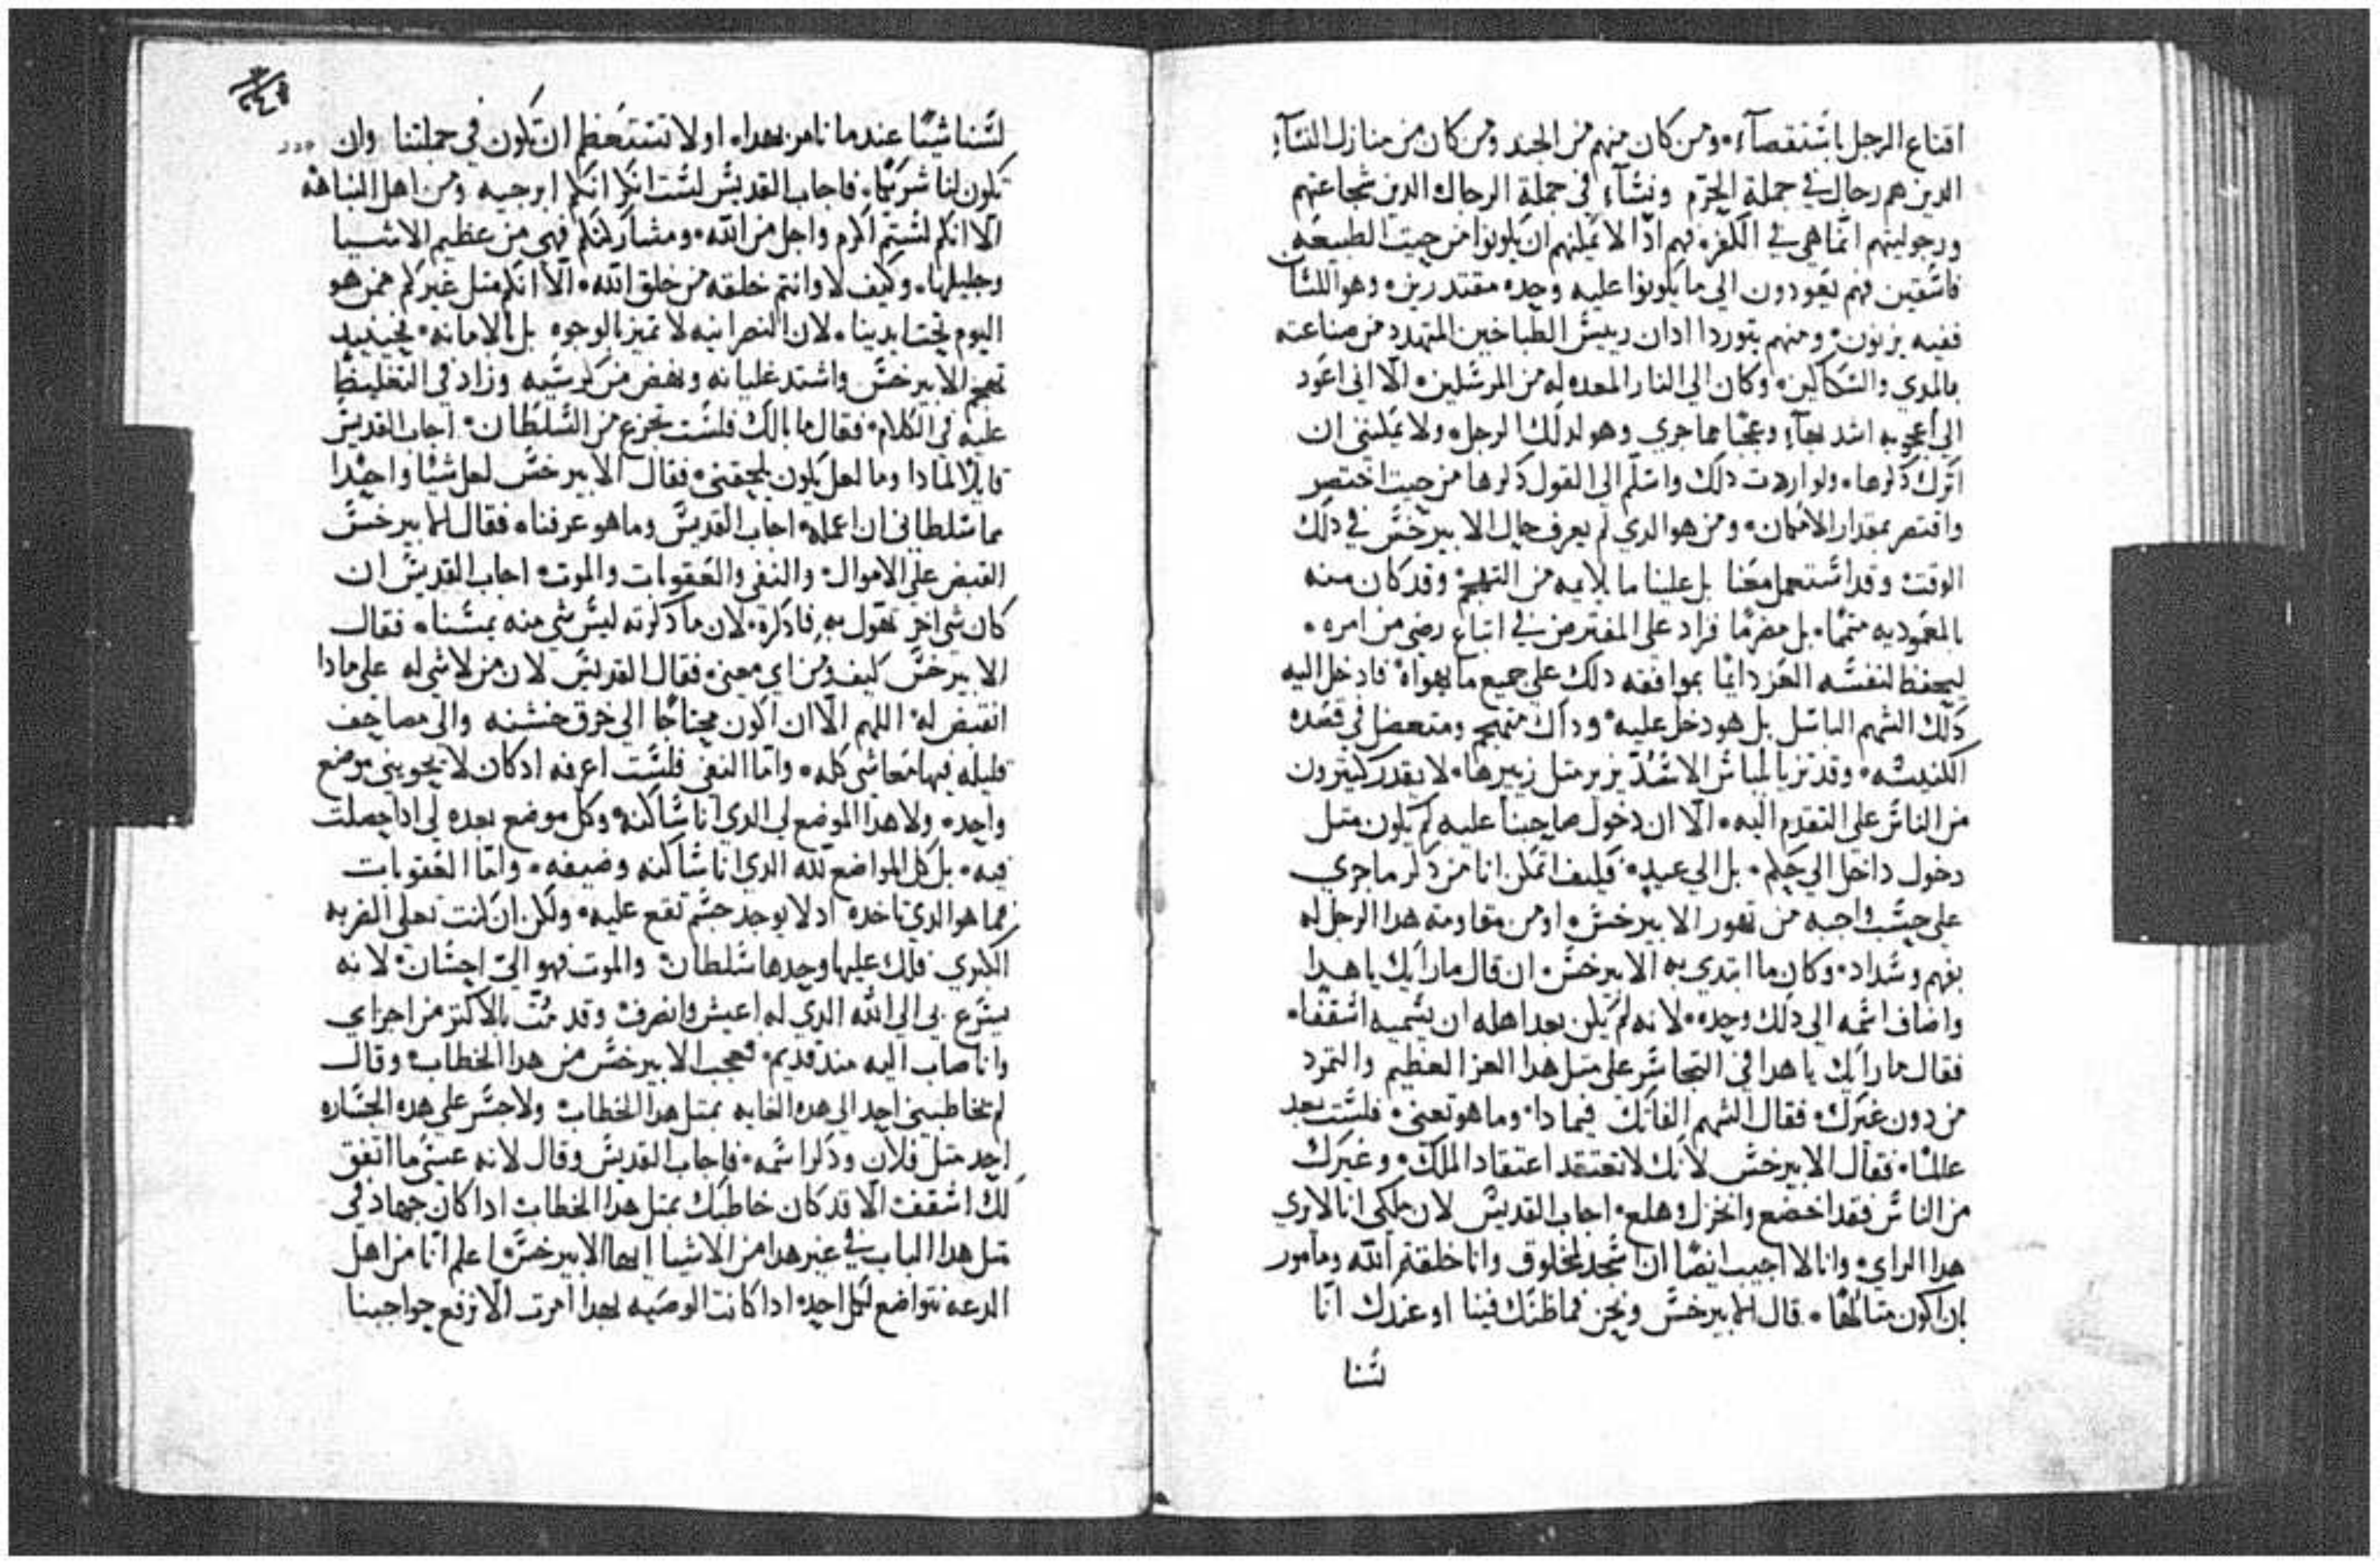 اقناع الرجل باستقصآء ومن كان منهم من الجند ومن كان من منازل النسآء
الدين هم رجال في جملة الحرم ونسآء في جملة الرجال الدين شجاعتهم
ورجوليتهم انما هي في الكفر فهم ادا لا يمكنهم ان يكونوا من حيت الطبيعه
فاسقين فهم يعودون الي ما يكونوا عليه وحده مقتدرين وهو اللسان
ففيه يزنون ومنهم ادان رييس الطباخين المتهدد من صناعته
بالمدي والسكاكين وكان الي النار المعده له من المرسلين الا اني اعود
الي اعجوبه اشد وعجبا مما جري وهو لدلك الرجل ولا يمكنني ان
اترك دكرها ولو اردت دلك واسلم الي القول دكرها من حيت اختصر
واقتصر بمقدار الامكان ومن هو الدي لم يعرف حال الابيرخس في دلك
الوقت وقد استعمل معنا بل علينا ما يلايمه من التهجم وقد كان منه
بالمعموديه متمما بل مغرما فزاد علي المفترض في اتباع رضي من امره
ليحفظ لنفسه العز دايما بموافقه دلك علي جميع ما يهواه فادخل اليه
دلك الشهم الباسل بل هو دخل عليه وداك متهجم ومتعصا في قصده
الكنيسه وقد تزيا لباس الاسد يزير متل زييرها لا يقدر كتيرون
من الناس علي التقدم اليه الا ان دخول صاحبنا عليه لم يكون متل
دخول داخل الي حكم بل الي عيد فكيف اتمكن انا من دكر ما جري
علي حسب واجبه من تهور الابيرخس او من مقاومته هدا الرجل له
بفهم وسداد وكان ما ابتدي به الابيرخس ان قال ما رايك يا هدا
واضاف اسمه الي دلك وحده لانه لم يكن بعد اهله ان يسميه اسقفا
فقال ما رايك يا هدا في التجاسر علي متل هدا العز العظيم والتمرد
من دون غيرك فقال الشهم الفاتك فيما دا وما هو تعني فلست بعد
عالما فقال الابيرخس لانك لا تعتقد اعتقاد الملك وغيرك
من الناس فقد اخضع وانخزل وهلع اجاب القديس لان ملكي انا لا يري
هدا الراي وانا لا اجيب ايضا ان اسجد لمخلوق وانا خليقة من الله ومامور
بان اكون متالها قال الابيرخس ونحن فما ظنك فينا او عندك انا
لسنا
لسنا شيئا عندما نامر بهدا او لا تستعظم ان تكون في جملتنا وان
تكون لنا شريكا فاجاب القديس لست انكر انكم ابرجيه ومن اهل النباهه
الا انكم لستم اكرم واجل من الله ومشاركتكم فهي من عظيم الاشيا
وجليلها وكيف لا وانتم خلقه من خلق الله الا انكم متل غيركم ممن هو
اليوم تحت ايدينا لان النصرانيه لا تميز بالوجوه بل بالامانه فحينيد
تهجم الابيرخس واشتد غليانه ونهض من كرسيه وزاد في التغليظ
عليه في الكلام فقال ما بالك فلست تجزع من السلطان اجاب القديس
قايلا لمادا وما لعل يكون يلحقني فقال الابيرخس لعل شيا واحدا
مما سلطاني ان اعمله اجاب القديس وما هو عرفناه فقال الابيرخس
القبض علي الاموال والنفي والعقوبات والموت اجاب القديس ان
كان شي اخر تقول به فادكره لان ما دكرته ليس شي منه يمسنا فقال
الابيرخس كيف ومن اي معني فقال القديس لان من لا شي له علي مادا
انقبض له اللهم الا ان اكون محتاجا الي خرق خشنه والي مصاحف
قليله فيها معاشي كله واما النفي فلست اعرفه ادكان لا يحويني موضع
واحد ولا هدا الموضع لي الدي انا ساكنه وكل موضع بعده لي ادا حصلت
فيه بل كل المواضع لله الدي انا ساكنه وضيفه واما العقوبات
فما هو الدي تاخده اد لا يوجد جسم تقع عليه ولكن ان كنت تعلي الضربه
الكبري فلك عليها وحدها سلطان والموت فهو الي احسان لانه
يسرع بي الي الله الدي له اعيش وانصرف وقد مت بالاكتر من اجزاي
وانا صاب اليه مند قديم فعجب الابيرخس من هدا الخطاب وقال
لم يخاطبني احد الي هده الغايه بمتل هدا الخطاب ولا جسر علي هده الجساره
احد متل فلان ودكر اسمه فاجاب القديس وقال لانه عسي ما اتفق
لك اسقف الا قد كان خاطبك بمتل هدا الخطاب ادا كان جهاد في
متل هدا الباب في غير هدا من الاشيا ايها الابيرخس اعلم انا من اهل
الدعه نتواضع لكل احد ادا كانت الوصيه بهدا امرت الا نرفع حواجبنا